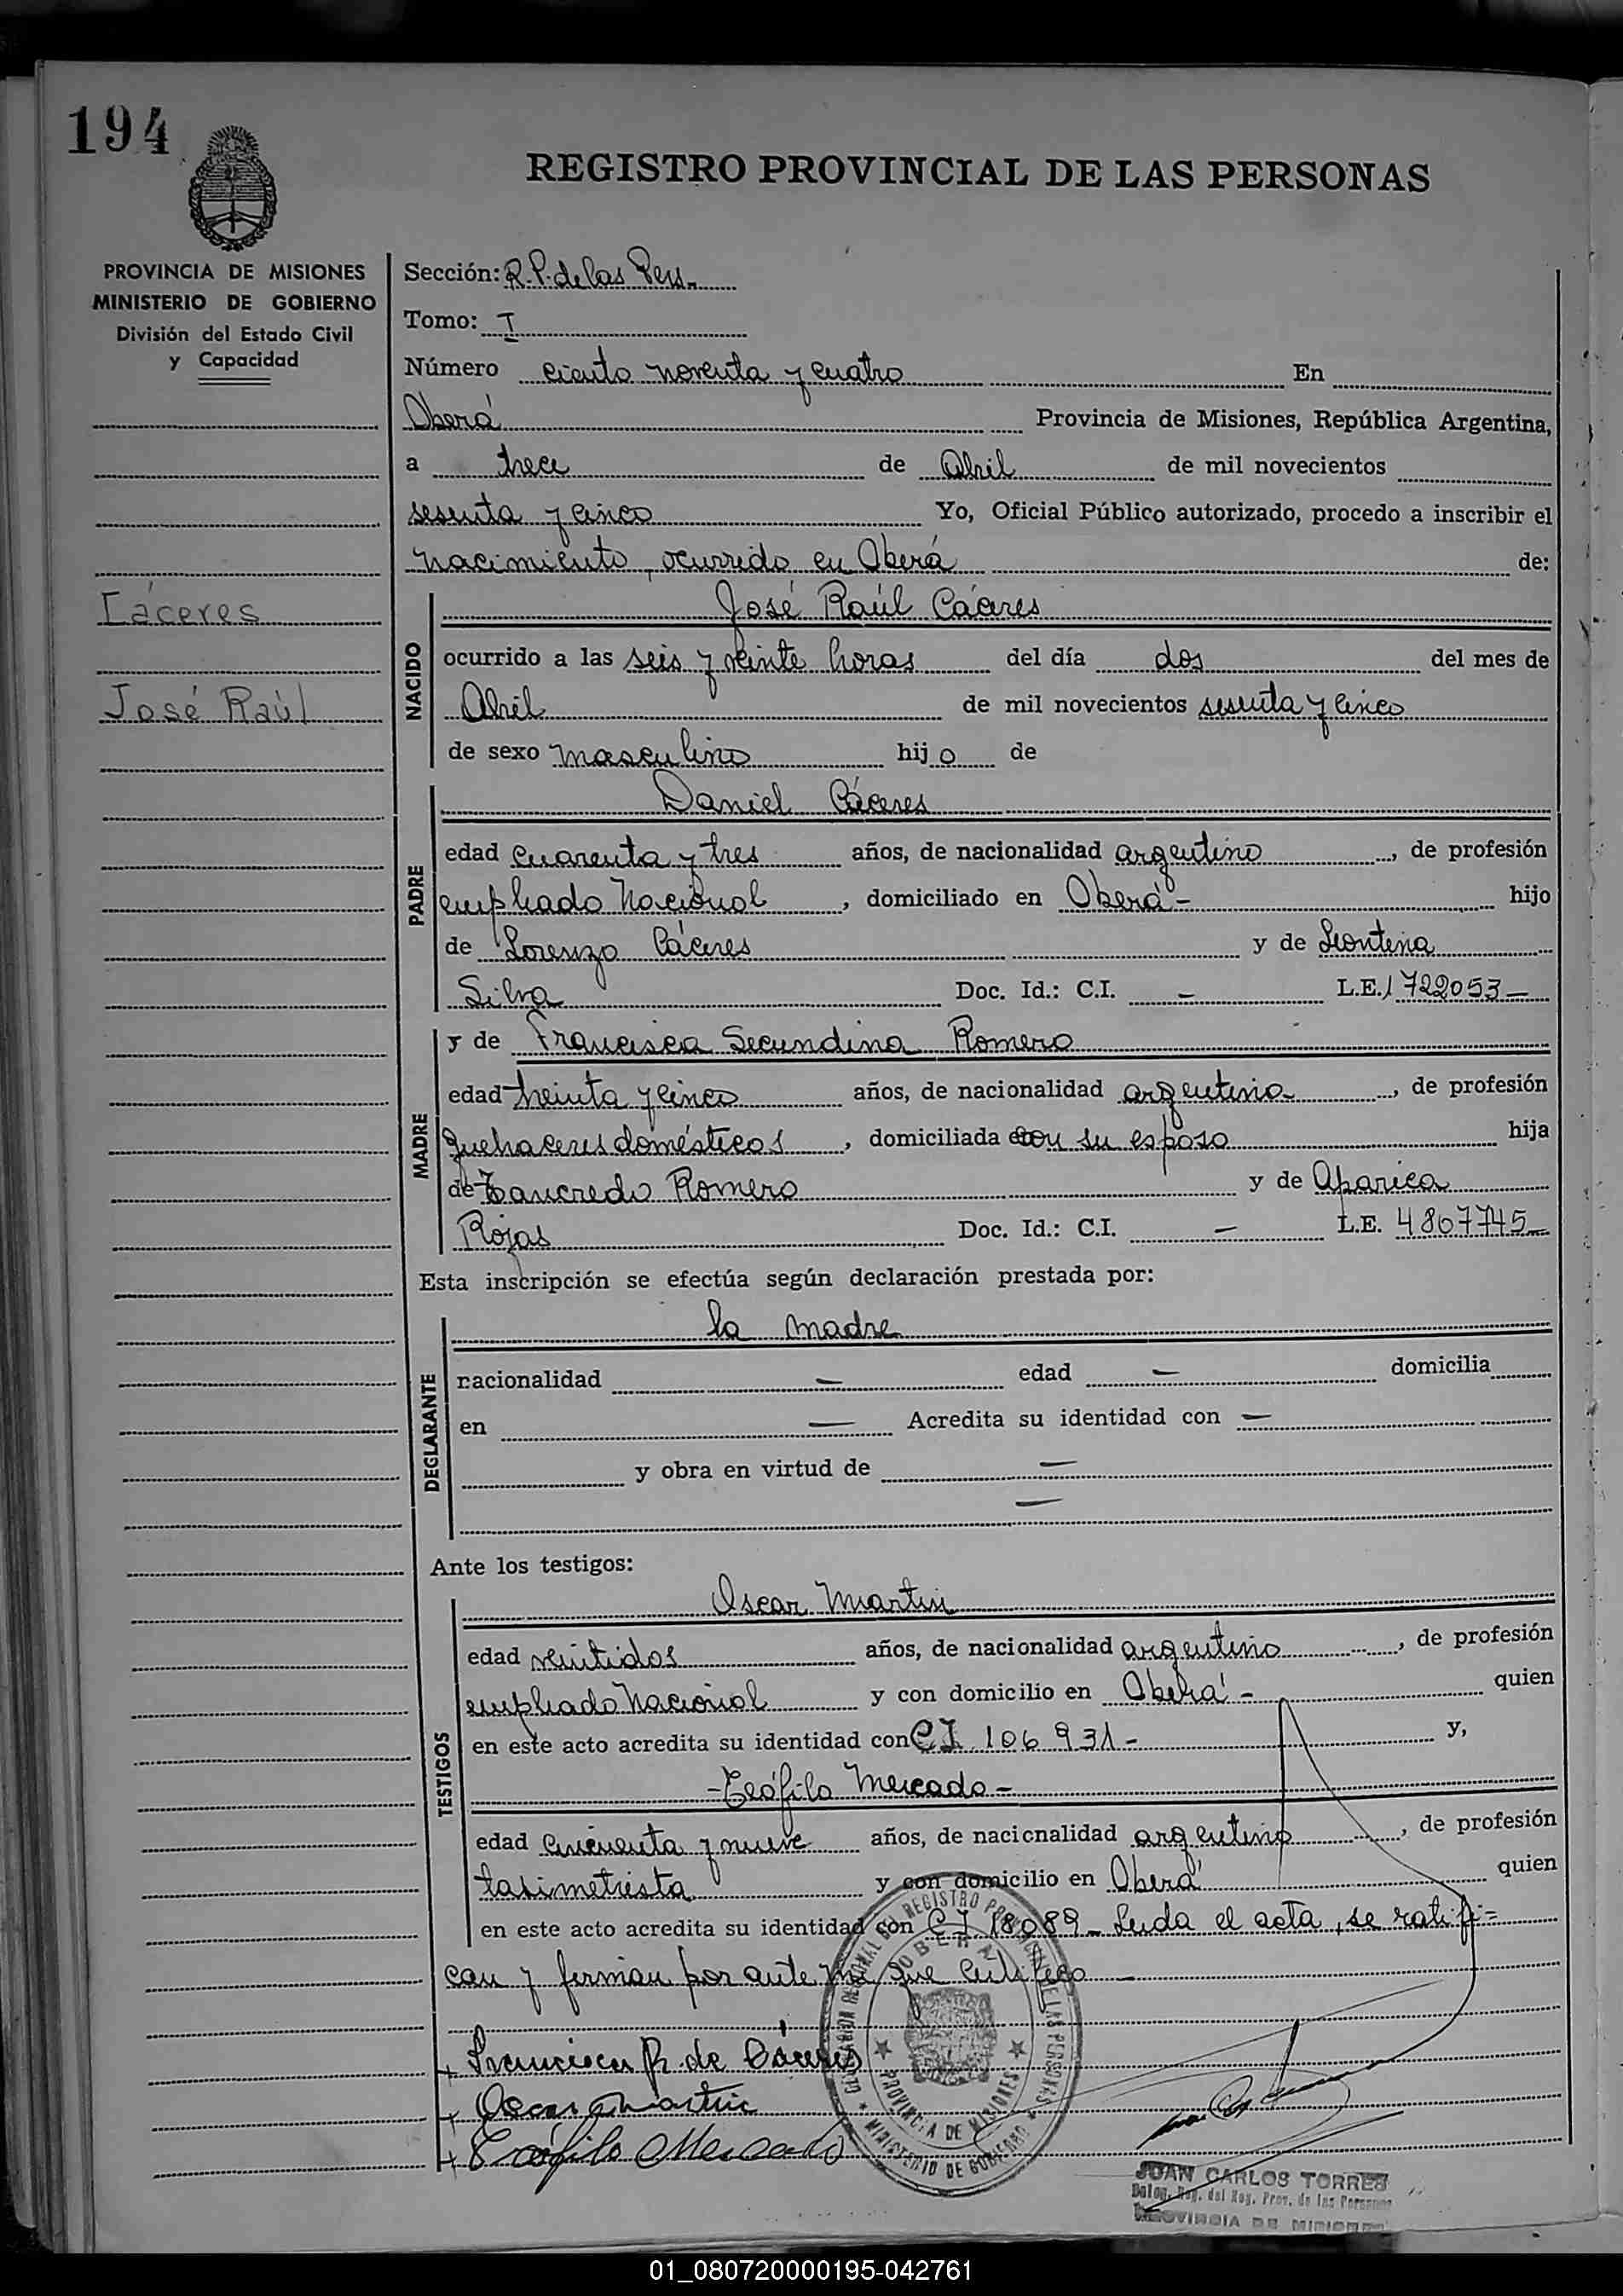 194
REGISTRO PROVINCIAL DE LAS PERSONAS
PROVINCIA DE MISIONES
MINISTERIO DE GOBIERNO
División del Estado Civil
y Capacidad
Cáceres
José Raúl
Sección: R. P. de las Pers.
Tomo: I
Número ciento noventa y cuatro En
Oberá Provincia de Misiones, República Argentina,
a trece de Abril de mil novecientos
sesenta y cinco Yo, Oficial Público autorizado, procedo a inscribir el
nacimiento, ocurrido en Oberá de:
NACIDO
José Raúl Cáceres
ocurrido a las seis y veinte horas del día dos del mes de
Abril de mil novecientos sesenta y cinco
de sexo masculino hijo de
PADRE
Daniel Cáceres
edad cuarenta y tres años, de nacionalidad argentino, de profesión
empleado Nacional, domiciliado en Oberá - hijo
de Lorenzo Cáceres y de Leontena
Silva Doc. Id.: C.I. - L.E. 1722053 -
MADRE
y de Francisca Secundina Romero
edad treinta y cinco años, de nacionalidad argentina, de profesión
quehaceres domésticos, domiciliada con su esposo hija
de Tancredo Romero y de Aparica
Rojas Doc. Id.: C.I. - L.E. 4867745 -
Esta inscripción se efectúa según declaración prestada por:
DECLARANTE
la madre
nacionalidad - edad - domicilia
en - Acredita su identidad con -
y obra en virtud de -
-
Ante los testigos:
TESTIGOS
Oscar Martin
edad veintidos años, de nacionalidad argentino, de profesión
empleado Nacional y con domicilio en Oberá - quien
en este acto acredita su identidad con C I 106931 - y,
- Teófilo Mercado -
edad cincuenta y nueve años, de nacionalidad argentino, de profesión
taximetrista y con domicilio en Oberá quien
en este acto acredita su identidad con C I 18089 - Leida el acta, se ratifi=
can y firman por ante mi que certifico
Francisca R. de Cáceres
Oscar Martin
Teófilo Mercado
DELEGACION REGIONAL DEL REGISTRO PROVINCIAL DE LAS PERSONAS
OBERA
PROVINCIA DE MISIONES
MINISTERIO DE GOBIERNO
JUAN CARLOS TORRES
Deleg. Reg. del Reg. Prov. de las Personas
PROVINCIA DE MISIONES
01_080720000195-042761